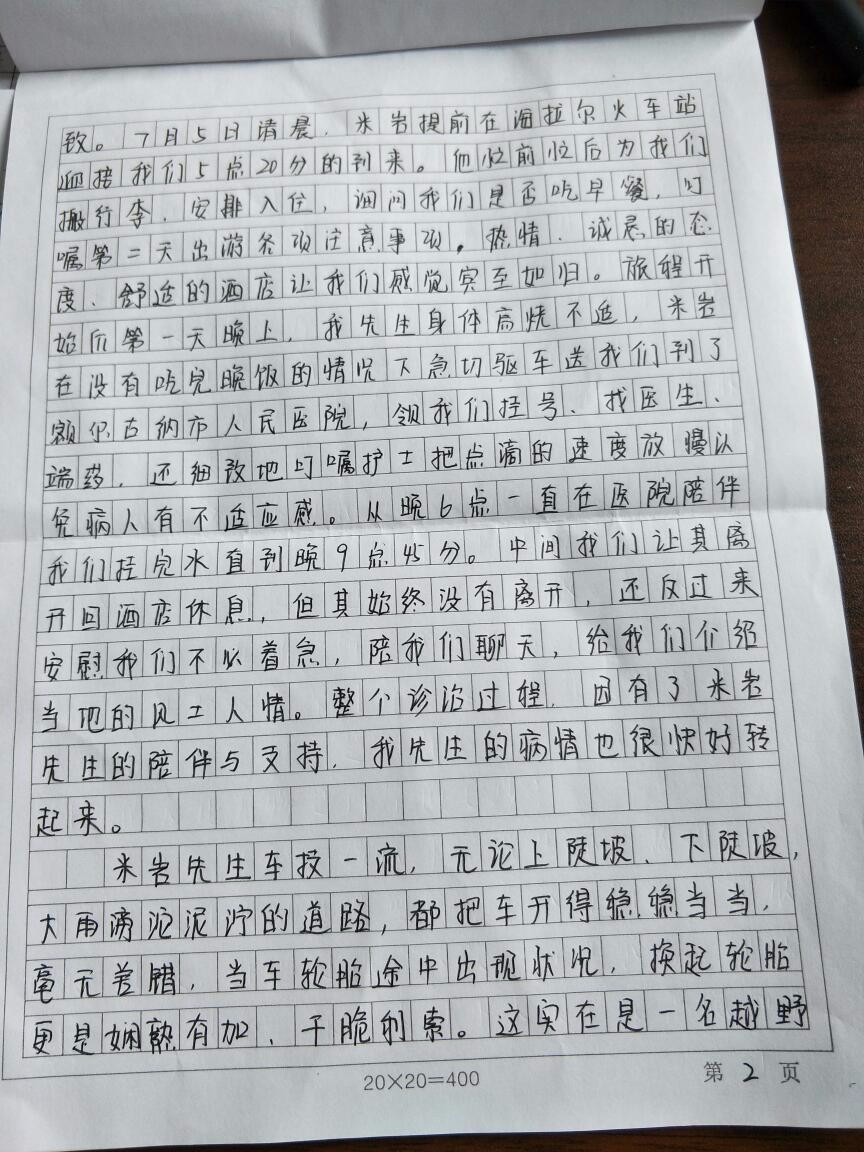 致。7月5日清晨，米岩提前在海拉尔火车站
迎接我们5点20分的到来。他忙前忙后为我们
搬行李、安排入住，细问我们是否吃早餐，叮
嘱第二天出游各项注意事项。热情、诚恳的态
度、舒适的酒店让我们感觉宾至如归。旅程开
始后第一天晚上，我先生身体高烧不适，米岩
在没有吃完晚饭的情况下急切驱车送我们到了
额尔古纳市人民医院，领我们挂号、找医生、
端药，还细致地叮嘱护士把点滴的速度放慢以
免病人有不适应感。从晚6点一直在医院陪伴
我们挂完水直到晚9点45分。中间我们让其离
开回酒店休息，但其始终没有离开，还反过来
安慰我们不必着急，陪我们聊天，给我们介绍
当地的风工人情。整个诊治过程，因有了米岩
先生的陪伴与支持，我先生的病情也很快好转
起来。
米岩先生车技一流，无论上陡坡、下陡坡，
大雨滂沱泥泞的道路，都把车开得稳稳当当，
毫无差错，当车轮胎途中出现状况，换起轮胎
更是娴熟有加、干脆利索。这实在是一名越野
20×20=400
第 2 页